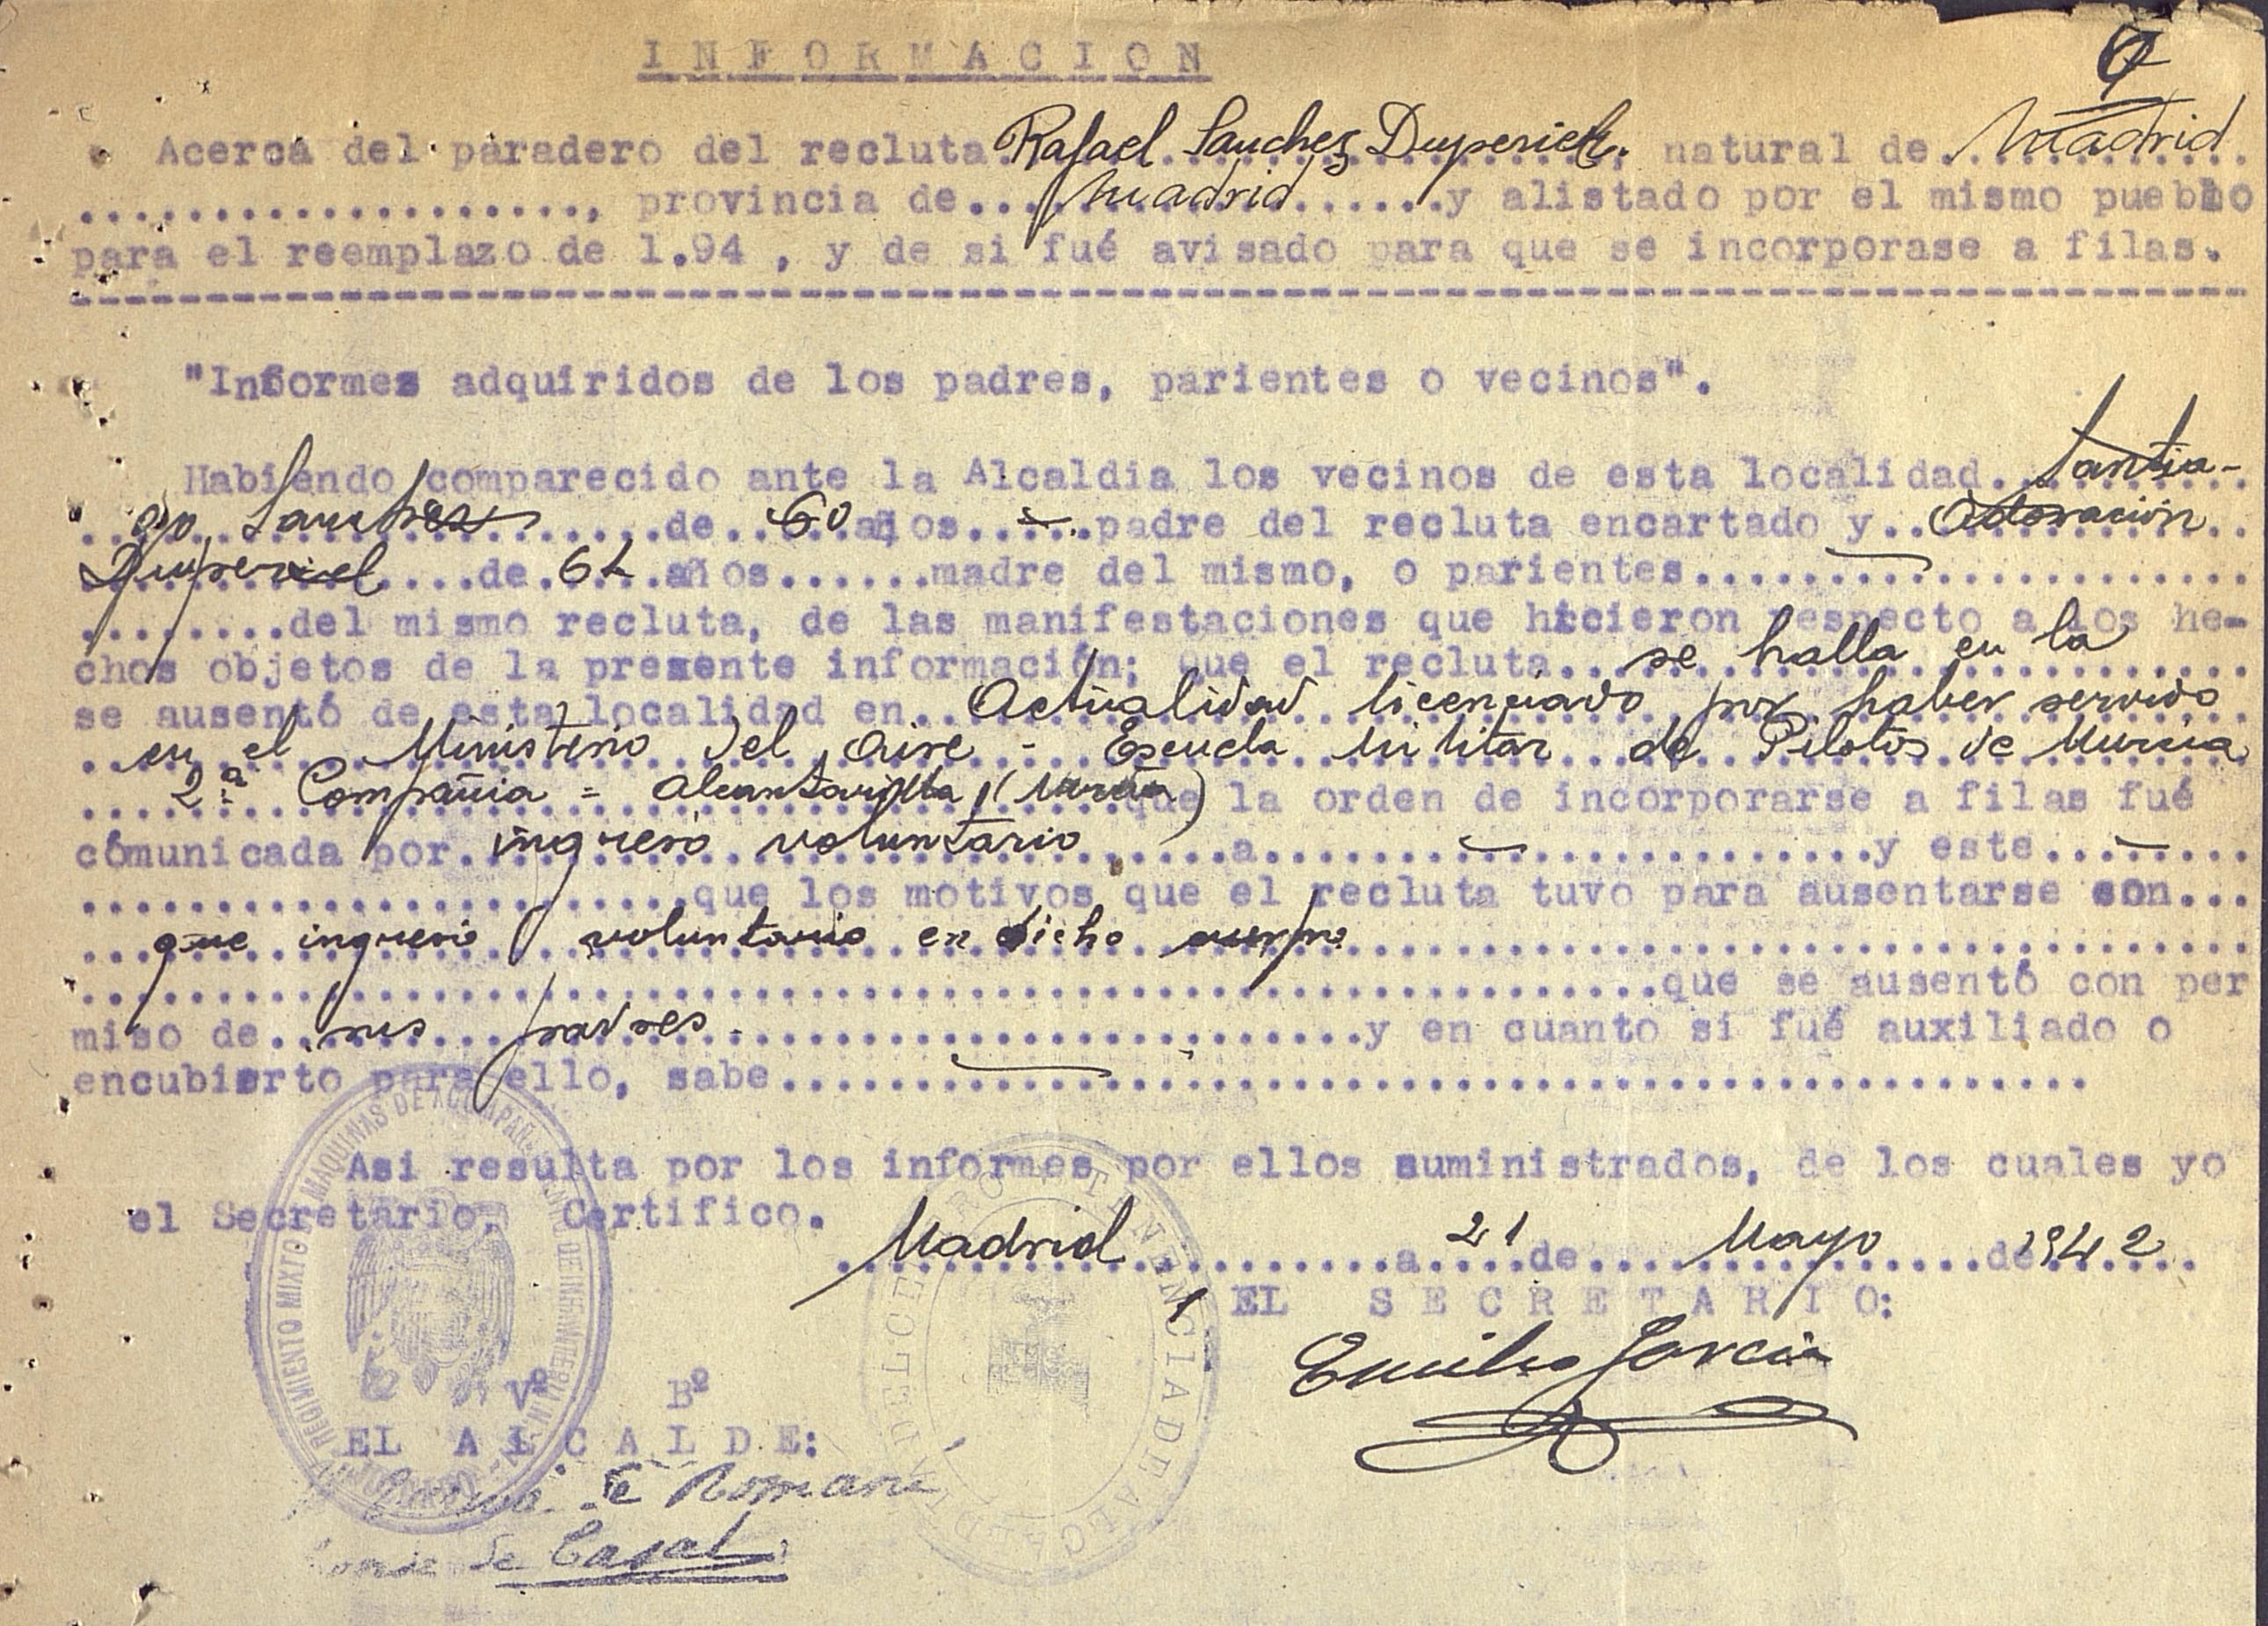 INFORMACION
Acerca del paradero del recluta Rafael Sanchez Duperier, natural de Madrid
...................., provincia de... Madrid ......y alistado por el mismo pueblo
para el reemplazo de 1.94 , y de si fué avisado para que se incorporase a filas.
"Informes adquiridos de los padres, parientes o vecinos".
Habiendo comparecido ante la Alcaldia los vecinos de esta localidad. Santia-
go Sanchez de 60 años padre del recluta encartado y Adoración
Duperiel de 62 años......madre del mismo, o parientes
........del mismo recluta, de las manifestaciones que hicieron respecto a los he-
chos objetos de la presente información; que el recluta... se halla en la
se ausentó de esta localidad en.. Actualidad licenciado por haber servido
en el Ministerio del Aire - Escuela Militar de Pilotos de Murcia
2ª Compañia = Alcantarilla (Murcia) que la orden de incorporarse a filas fué
cómunicada por. ingreso voluntario a - y este.... -
que los motivos que el recluta tuvo para ausentarse son...
que ingresó voluntario en dicho cuerpo
que se ausentó con per
miso de.. sus padres. y en cuanto si fué auxiliado o
encubierto para ello, sabe
Asi resulta por los informes por ellos suministrados, de los cuales yo
el Secretario, Certifico.
Madrid a 21 de Mayo de 1942
EL SECRETARIO:
Emilio Garcia
Vº Bº
EL ALCALDE:
de Romani
Conde de Casal
REGIMIENTO MIXTO DE MAQUINAS DE ACOMPAÑAMIENTO DE INFANTERIA N
TENENCIA DE ALCALDIA DEL